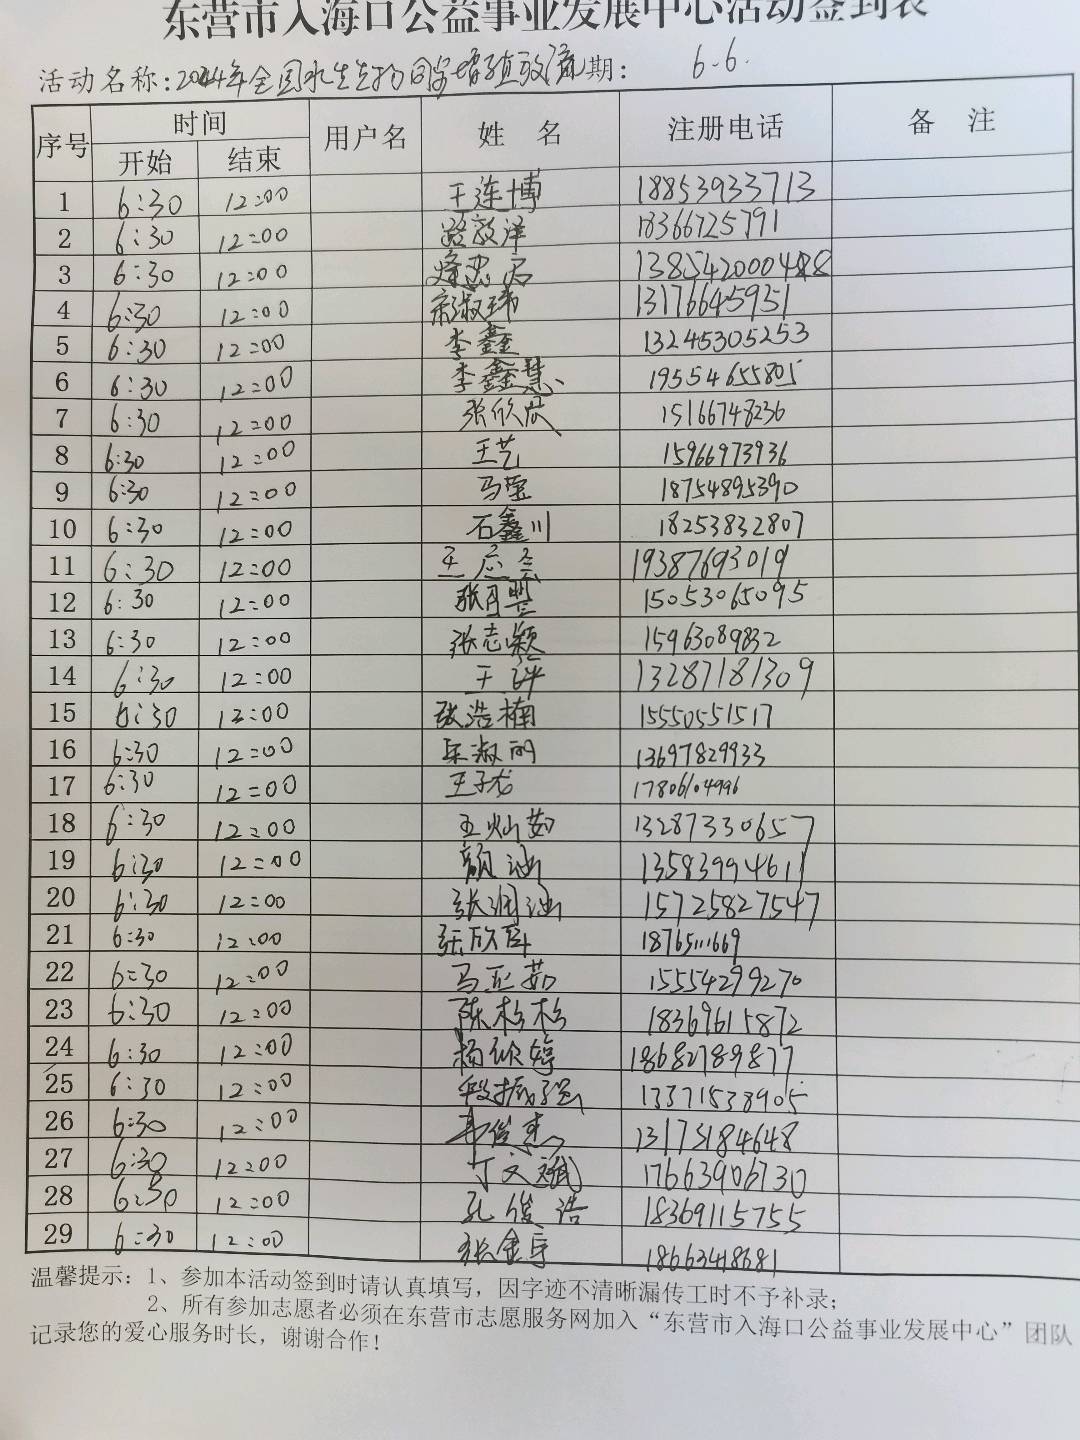 东营市入海口公益事业发展中心活动签到表
活动名称：2024年全国水生生物同步增殖放流 期： 6.6.
序号 时间 用户名 姓 名 注册电话 备 注
开始 结束
1 6:30 12:00 王连博 18853933713
2 6:30 12:00 路敬洋 18366725791
3 6:30 12:00 138542000488
4 6:30 12:00 13176645951
5 6:30 12:00 李鑫 13245305253
6 6:30 12:00 李鑫慧 19554655805
7 6:30 12:00 张欣宸 15166748236
8 6:30 12:00 王艺 15966973936
9 6:30 12:00 马莹 18754895390
10 6:30 12:00 石鑫川 18253832807
11 6:30 12:00 19387693019
12 6:30 12:00 15053065095
13 6:30 12:00 张志颖 15963089832
14 6:30 12:00 13287181309
15 6:30 12:00 张浩楠 15550551517
16 6:30 12:00 13697829933
17 6:30 12:00 王子龙 17806104996
18 6:30 12:00 王灿茹 13287330657
19 6:30 12:00 颜涵 13583994611
20 6:30 12:00 张润涵 15725827547
21 6:30 12:00 18765111669
22 6:30 12:00 马亚茹 15554299270
23 6:30 12:00 陈杉杉 18369615872
24 6:30 12:00 杨欣婷 18682789877
25 6:30 12:00 段振强 13371538905
26 6:30 12:00 13173184648
27 6:30 12:00 丁文斌 17663906730
28 6:30 12:00 孔俊浩 18369115755
29 6:30 12:00 18663418681
温馨提示：1、参加本活动签到时请认真填写，因字迹不清晰漏传工时不予补录；
2、所有参加志愿者必须在东营市志愿服务网加入“东营市入海口公益事业发展中心”团队
记录您的爱心服务时长，谢谢合作！